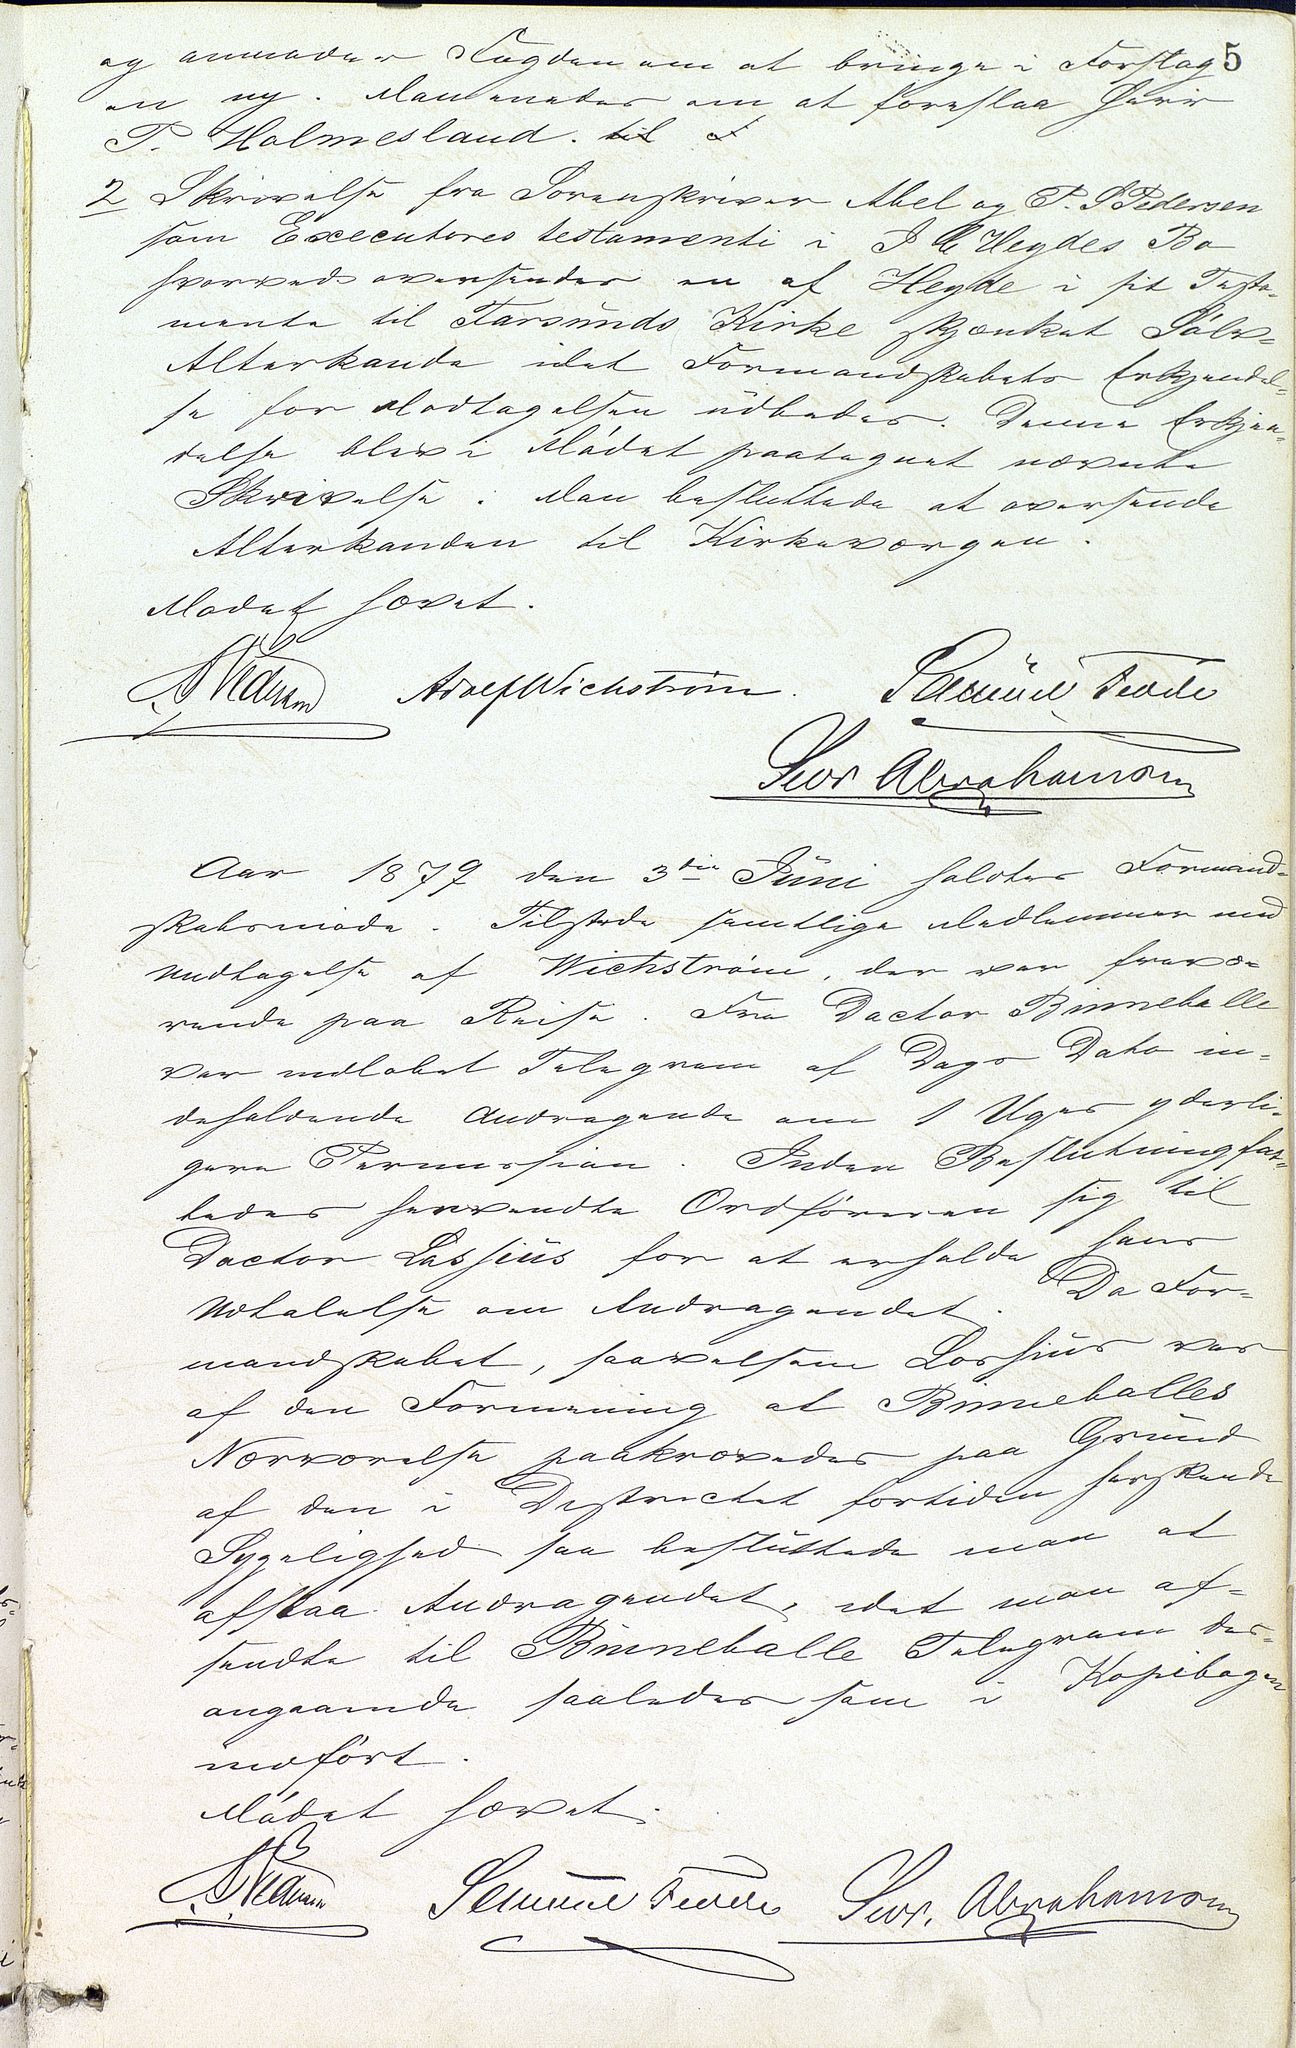 og anmoder Fogden om at bringe i Forslag 5
en ny. Man enedes om at foreslaa Herr
P. Holmesland. til
2 Skrivelse fra Sorenskriver Abel og P. S Pedersen
som Executores testamenti i J C Heydes Bo
hvorved oversendes en af Heyde i sit Testa-
mente til Farsunds Kirke skjænket Sølv-
Alterkande idet Formandskabets Erkjendel-
se for Modtagelsen udbedes. Denne Erkjen-
delse blev i Mødet paategnet nævnte
Skrivelse. Man besluttede at oversende
Alterkanden til Kirkeværgen.
Mødet hævet.
Adolf Wichstrøm. Samuel
Sivr Abrahamson
Aar 1879 den 3die Juni holdtes Formand-
skabsmøde. Tilstede samtlige Medlemmer med
Undtagelse af Wichstrøm, der var fravæ-
rende paa Reise. Fra Doctor Binneballe
var indløbet Telegram af Dags Dato in-
deholdende Andragende om 1 Uges yderli-
gere Permission. Inden Beslutning fat-
tedes henvendte Ordføreren sig til
Doctor Lossius for at erholde hans
Udtalelse om Andragendet. Da For-
mandskabet, saavelsom Lossius var
af den Formening at Binneballes
Nærværelse paakrævedes paa Grund
af den i Districtet fortiden herskende
Sygelighed saa besluttede man at
afslaa Andragendet, idet man af-
sendte til Binneballe Telegram des-
angaaende saaledes som i Kopibogen
indført.
Mødet hævet.
Samuel Sivr. Abrahamson